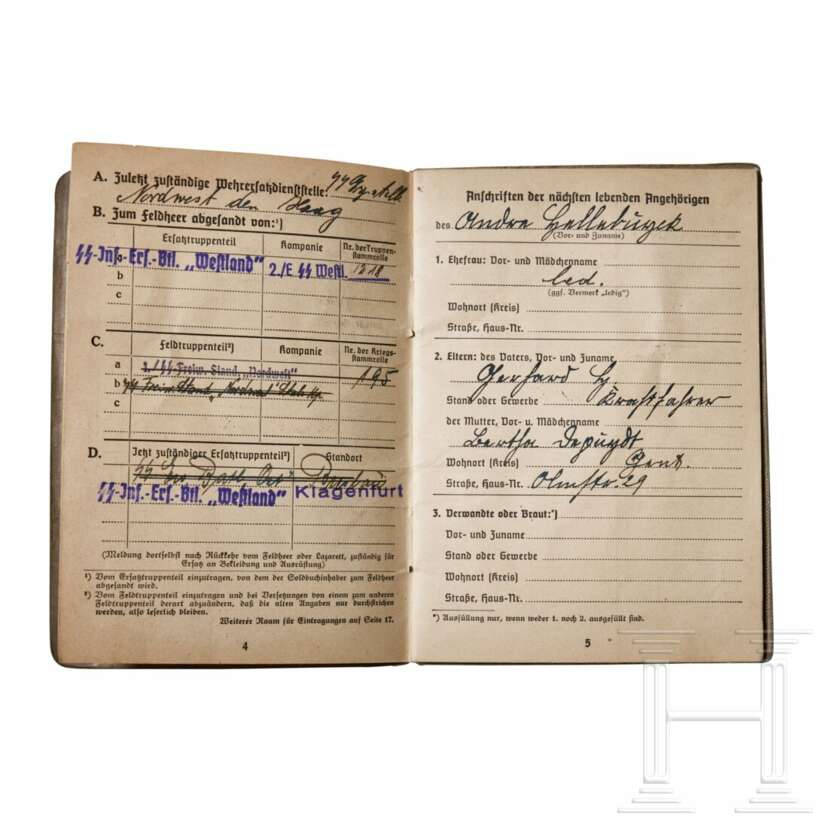 A. Zuletzt zuständige Wehrersatzdienststelle: SS
Nordwest den Haag
B. Zum Feldheer abgesandt von:¹)
Ersatztruppenteil Kompanie Nr. der Truppen-
stammrolle
SS-Inf.-Ers.-Btl. „Westland" 2./E SS Westl. 1518
b
c
C. Feldtruppenteil²) Kompanie Nr. der Kriegs-
stammrolle
a 2./SS-Freiw. Stand. „Nordwest" 195
b SS Freiw. Stand. „Nordwest"
c
D. Jetzt zuständiger Ersatztruppenteil²) Standort
SS Ers. Batl. Ost Breslau
SS-Inf.-Ers.-Btl. „Westland" Klagenfurt
(Meldung dortselbst nach Rückkehr vom Feldheer oder Lazarett, zuständig für
Ersatz an Bekleidung und Ausrüstung)
¹) Vom Ersatztruppenteil einzutragen, von dem der Soldbuchinhaber zum Feldheer
abgesandt wird.
²) Vom Feldtruppenteil einzutragen und bei Versetzungen von einem zum anderen
Feldtruppenteil derart abzuändern, daß die alten Angaben nur durchstrichen
werden, also leserlich bleiben.
Weiterer Raum für Eintragungen auf Seite 17.
4
Anschriften der nächsten lebenden Angehörigen
des Andre Hellebuyck
(Vor- und Zuname)
1. Ehefrau: Vor- und Mädchenname
led.
(ggf. Vermerk „ledig")
Wohnort (Kreis)
Straße, Haus-Nr.
2. Eltern: des Vaters, Vor- und Zuname
Gerhard H
Stand oder Gewerbe Kraftfahrer
der Mutter, Vor- u. Mädchenname
Bertha Depuydt
Wohnort (Kreis) Gent
Straße, Haus-Nr. Olmstr. 29
3. Verwandte oder Braut:*)
Vor- und Zuname
Stand oder Gewerbe
Wohnort (Kreis)
Straße, Haus-Nr.
*) Ausfüllung nur, wenn weder 1. noch 2. ausgefüllt sind.
5
H